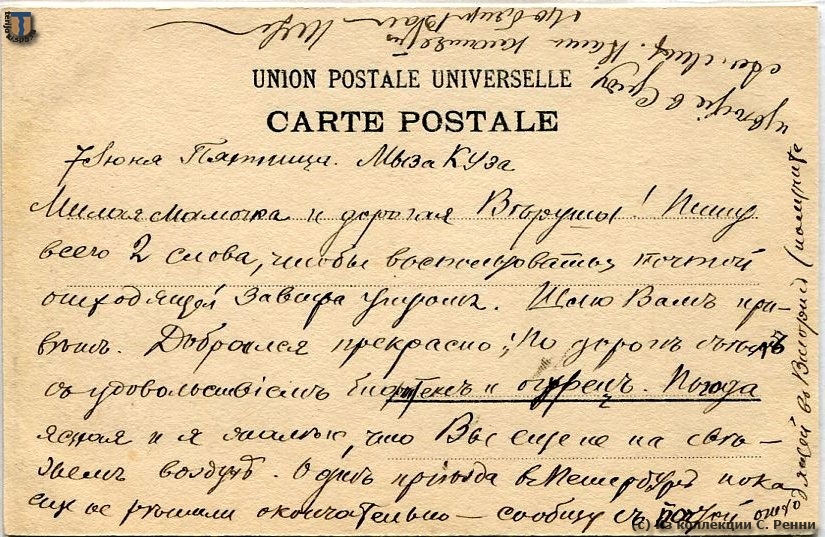 UNION POSTALE UNIVERSELLE
CARTE POSTALE
7 Iюня Пятница. Мыза Куза
Милая мамочка и дорогая Вѣруша! Пишу
всего 2 слова, чтобы воспользоваться почтой
отходящей завтра утромъ. Шлю Вамъ при-
вѣтъ. Добрался прекрасно; По дорогѣ съѣлъ
съ удовольствіемъ и огурецъ. Погода
ясная и я жалѣю, что Вы еще не на свѣ-
жемъ воздухѣ. О днѣ пріѣзда в Петербургъ пока
еще не рѣшили окончательно – сообщу съ почтой
отходящей въ Вторникъ (получите
въ Среду
(с) Из коллекции С. Ренни